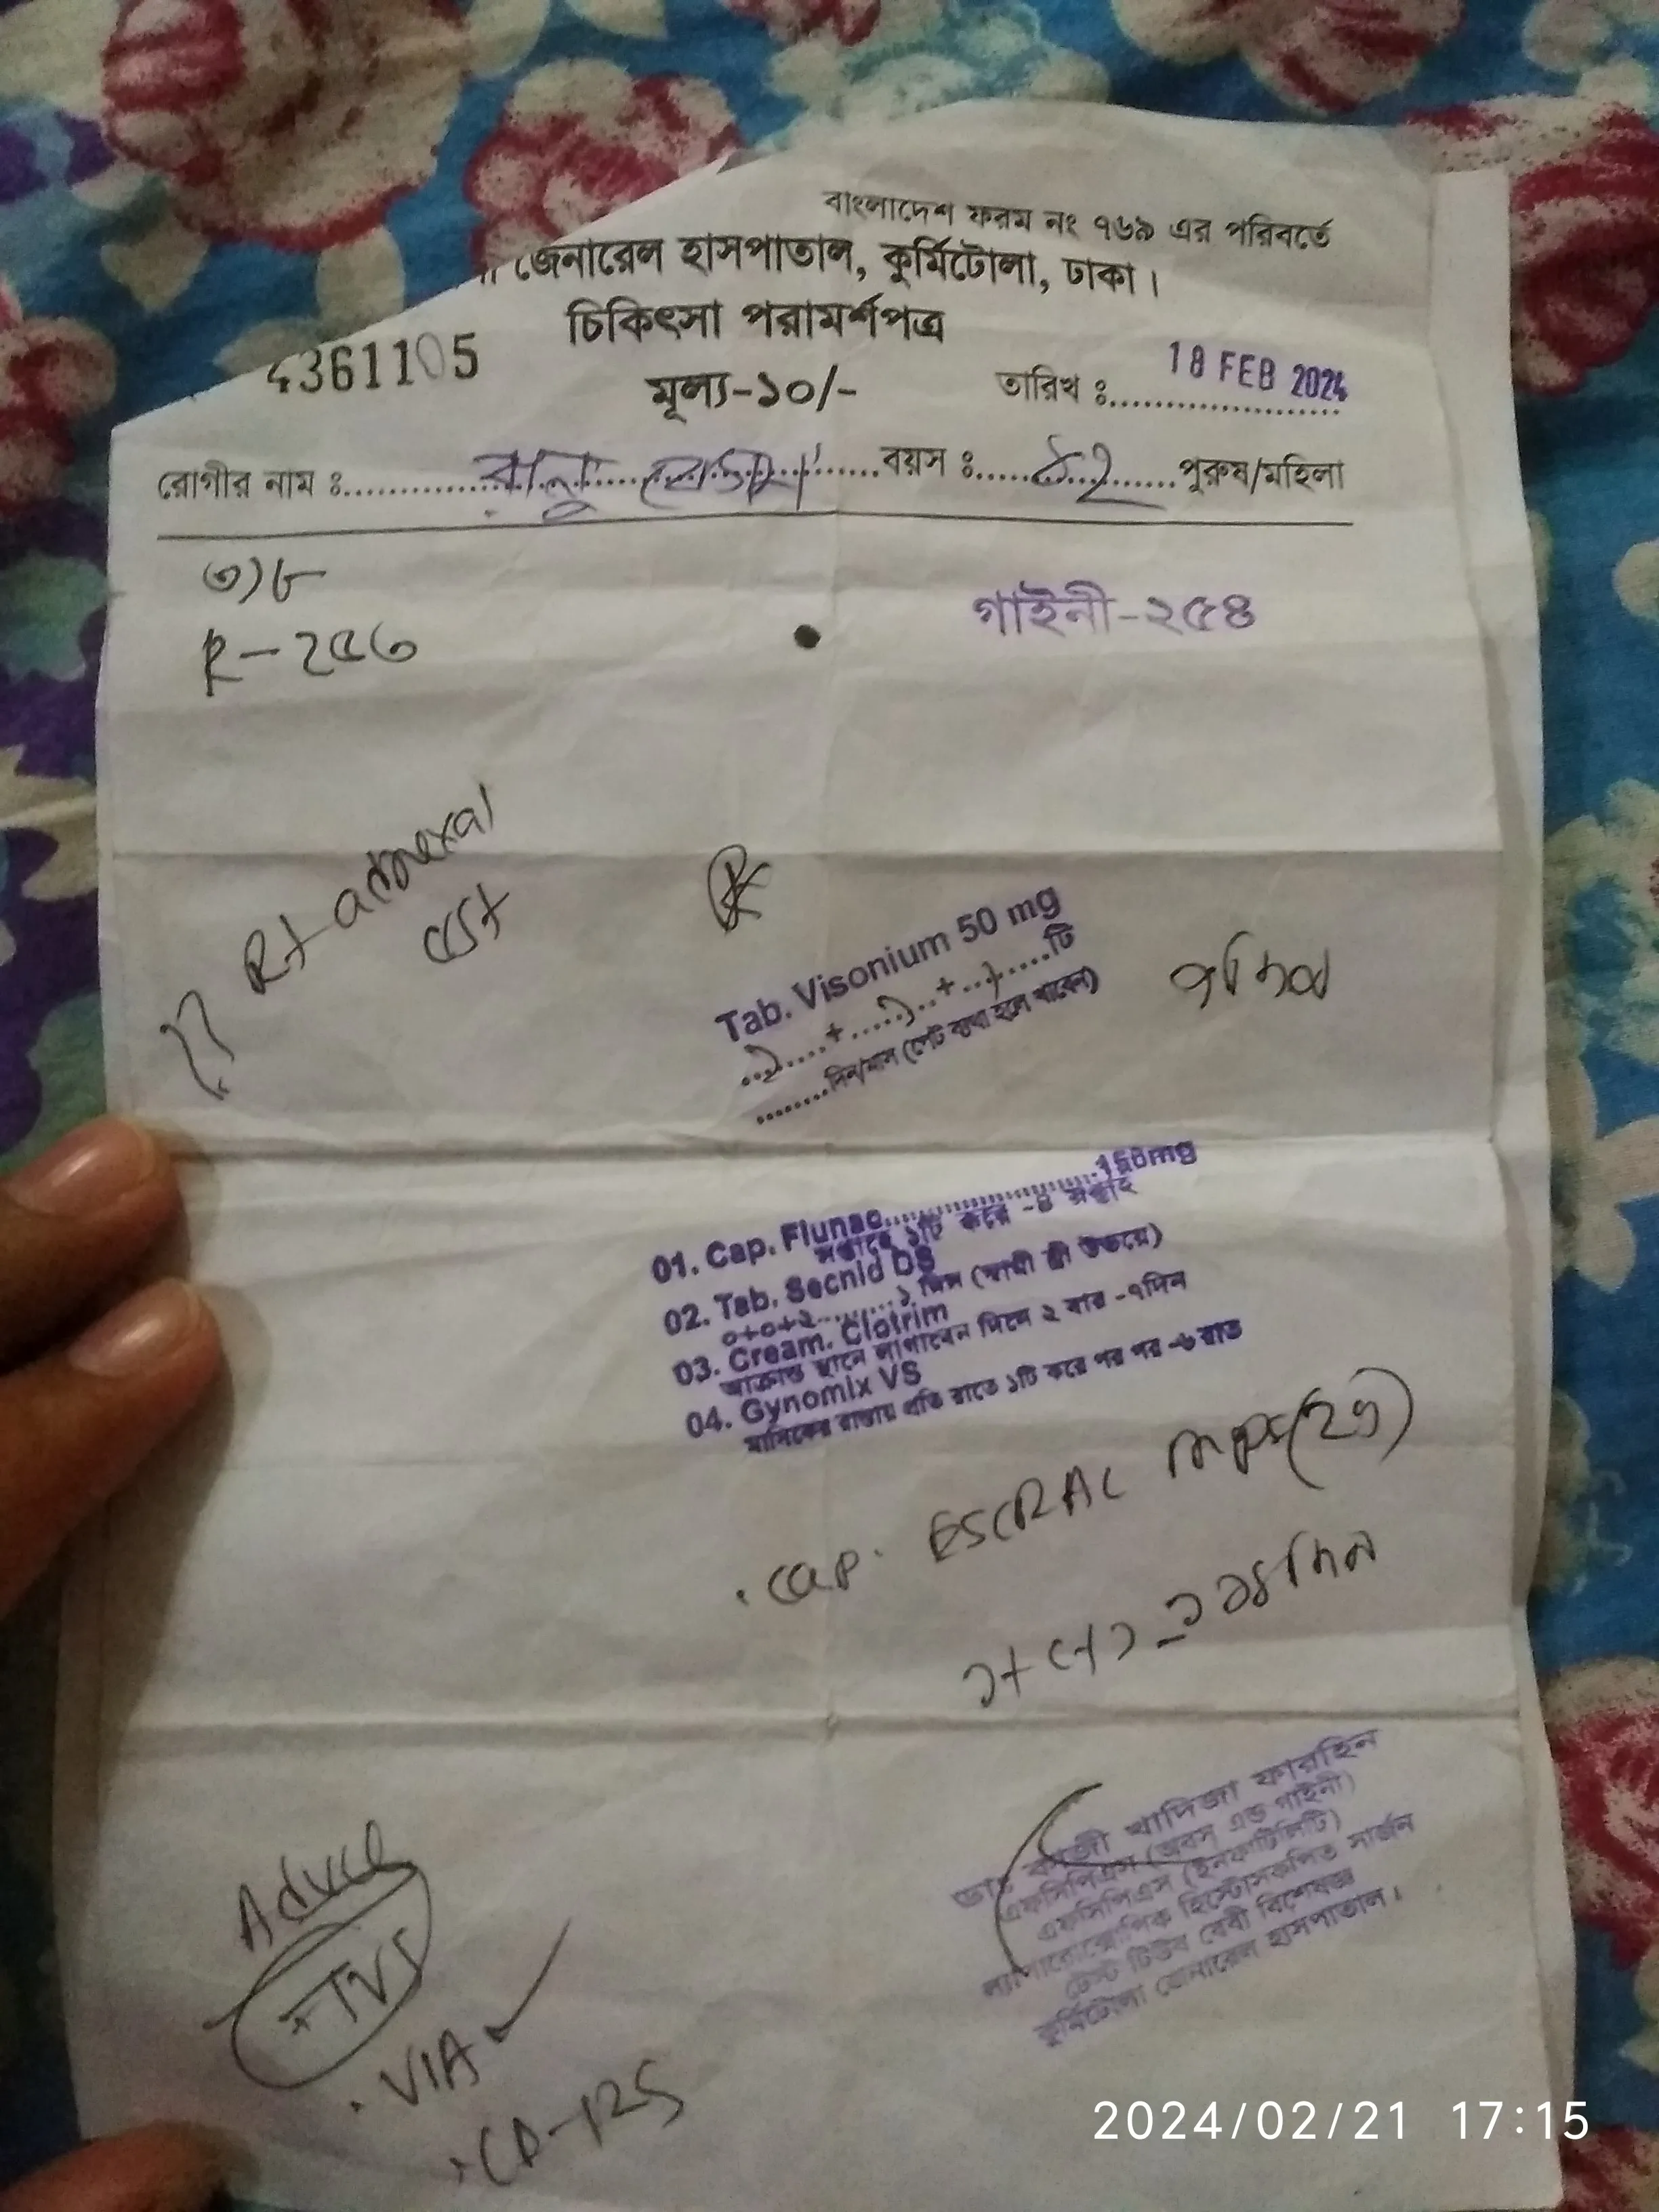 বাংলাদেশ ফরম নং ৭৬৯ এর পরিবর্তে
জেনারেল হাসপাতাল, কুর্মিটোলা, ঢাকা।
চিকিৎসা পরামর্শপত্র
361105
মূল্য-১০/-
তারিখ ঃ 18 FEB 2024
রোগীর নাম ঃ বয়স ঃ ৪২ পুরুষ/মহিলা
গাইনী-২৫৪
R-২৫৩
Rt adnexal
cyst
Tab. Visonium 50 mg
১ + ১ + ১ টি
দিন/মাস (পেট ব্যথা হলে খাবেন)
01. Cap. Flunac 150mg
সপ্তাহে ১টি করে -৪ সপ্তাহ
02. Tab. Secnid DS
০+০+২ ১ দিন (স্বামী স্ত্রী উভয়ে)
03. Cream. Clotrim
আক্রান্ত স্থানে লাগাবেন দিনে ২ বার -৭দিন
04. Gynomix VS
মাসিকের রাস্তায় প্রতি রাতে ১টি করে পর পর -৬ রাত
Cap. MUPS (20)
ডাঃ কাজী খাদিজা ফারহিন
এফসিপিএস (অবস এন্ড গাইনী)
এফসিপিএস (ইনফার্টিলিটি)
ল্যাপারোস্কোপিক হিস্টোসকপিক সার্জন
টেস্ট টিউব বেবী বিশেষজ্ঞ
কুর্মিটোলা জেনারেল হাসপাতাল।
Advice
TVS
VIA
CA-125
2024/02/21 17:15